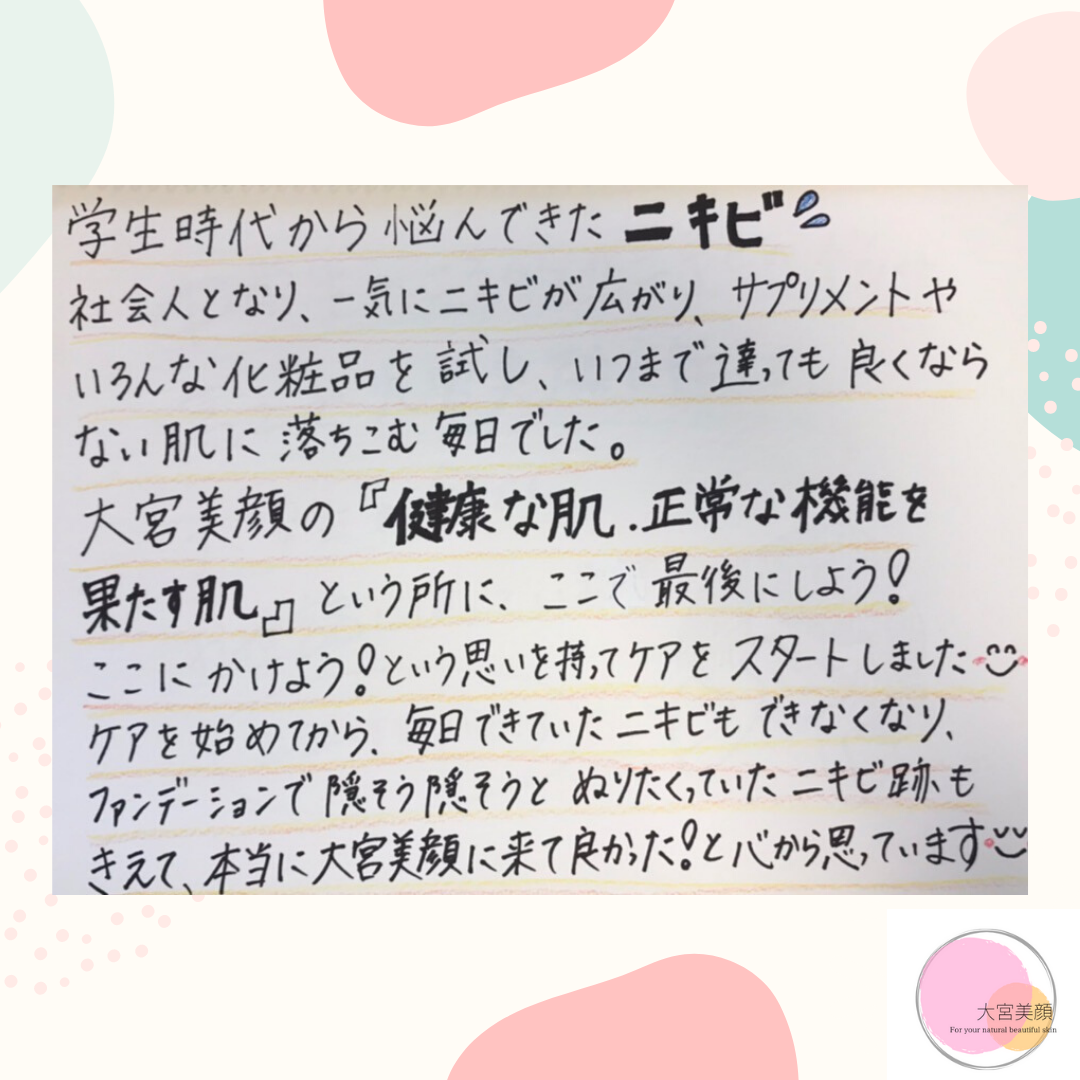 学生時代から悩んできたニキビ
社会人となり、一気にニキビが広がり、サプリメントや
いろんな化粧品を試し、いつまで達っても良くなら
ない肌に落ちこむ毎日でした。
大宮美顔の『健康な肌.正常な機能を
果たす肌』という所に、ここで最後にしよう!
ここにかけよう!という思いを持ってケアをスタートしました
ケアを始めてから、毎日できていたニキビもできなくなり、
ファンデーションで隠そう隠そうとぬりたくっていたニキビ跡も
きえて、本当に大宮美顔に来て良かった!と心から思っています
大宮美顔
For your natural beautiful skin